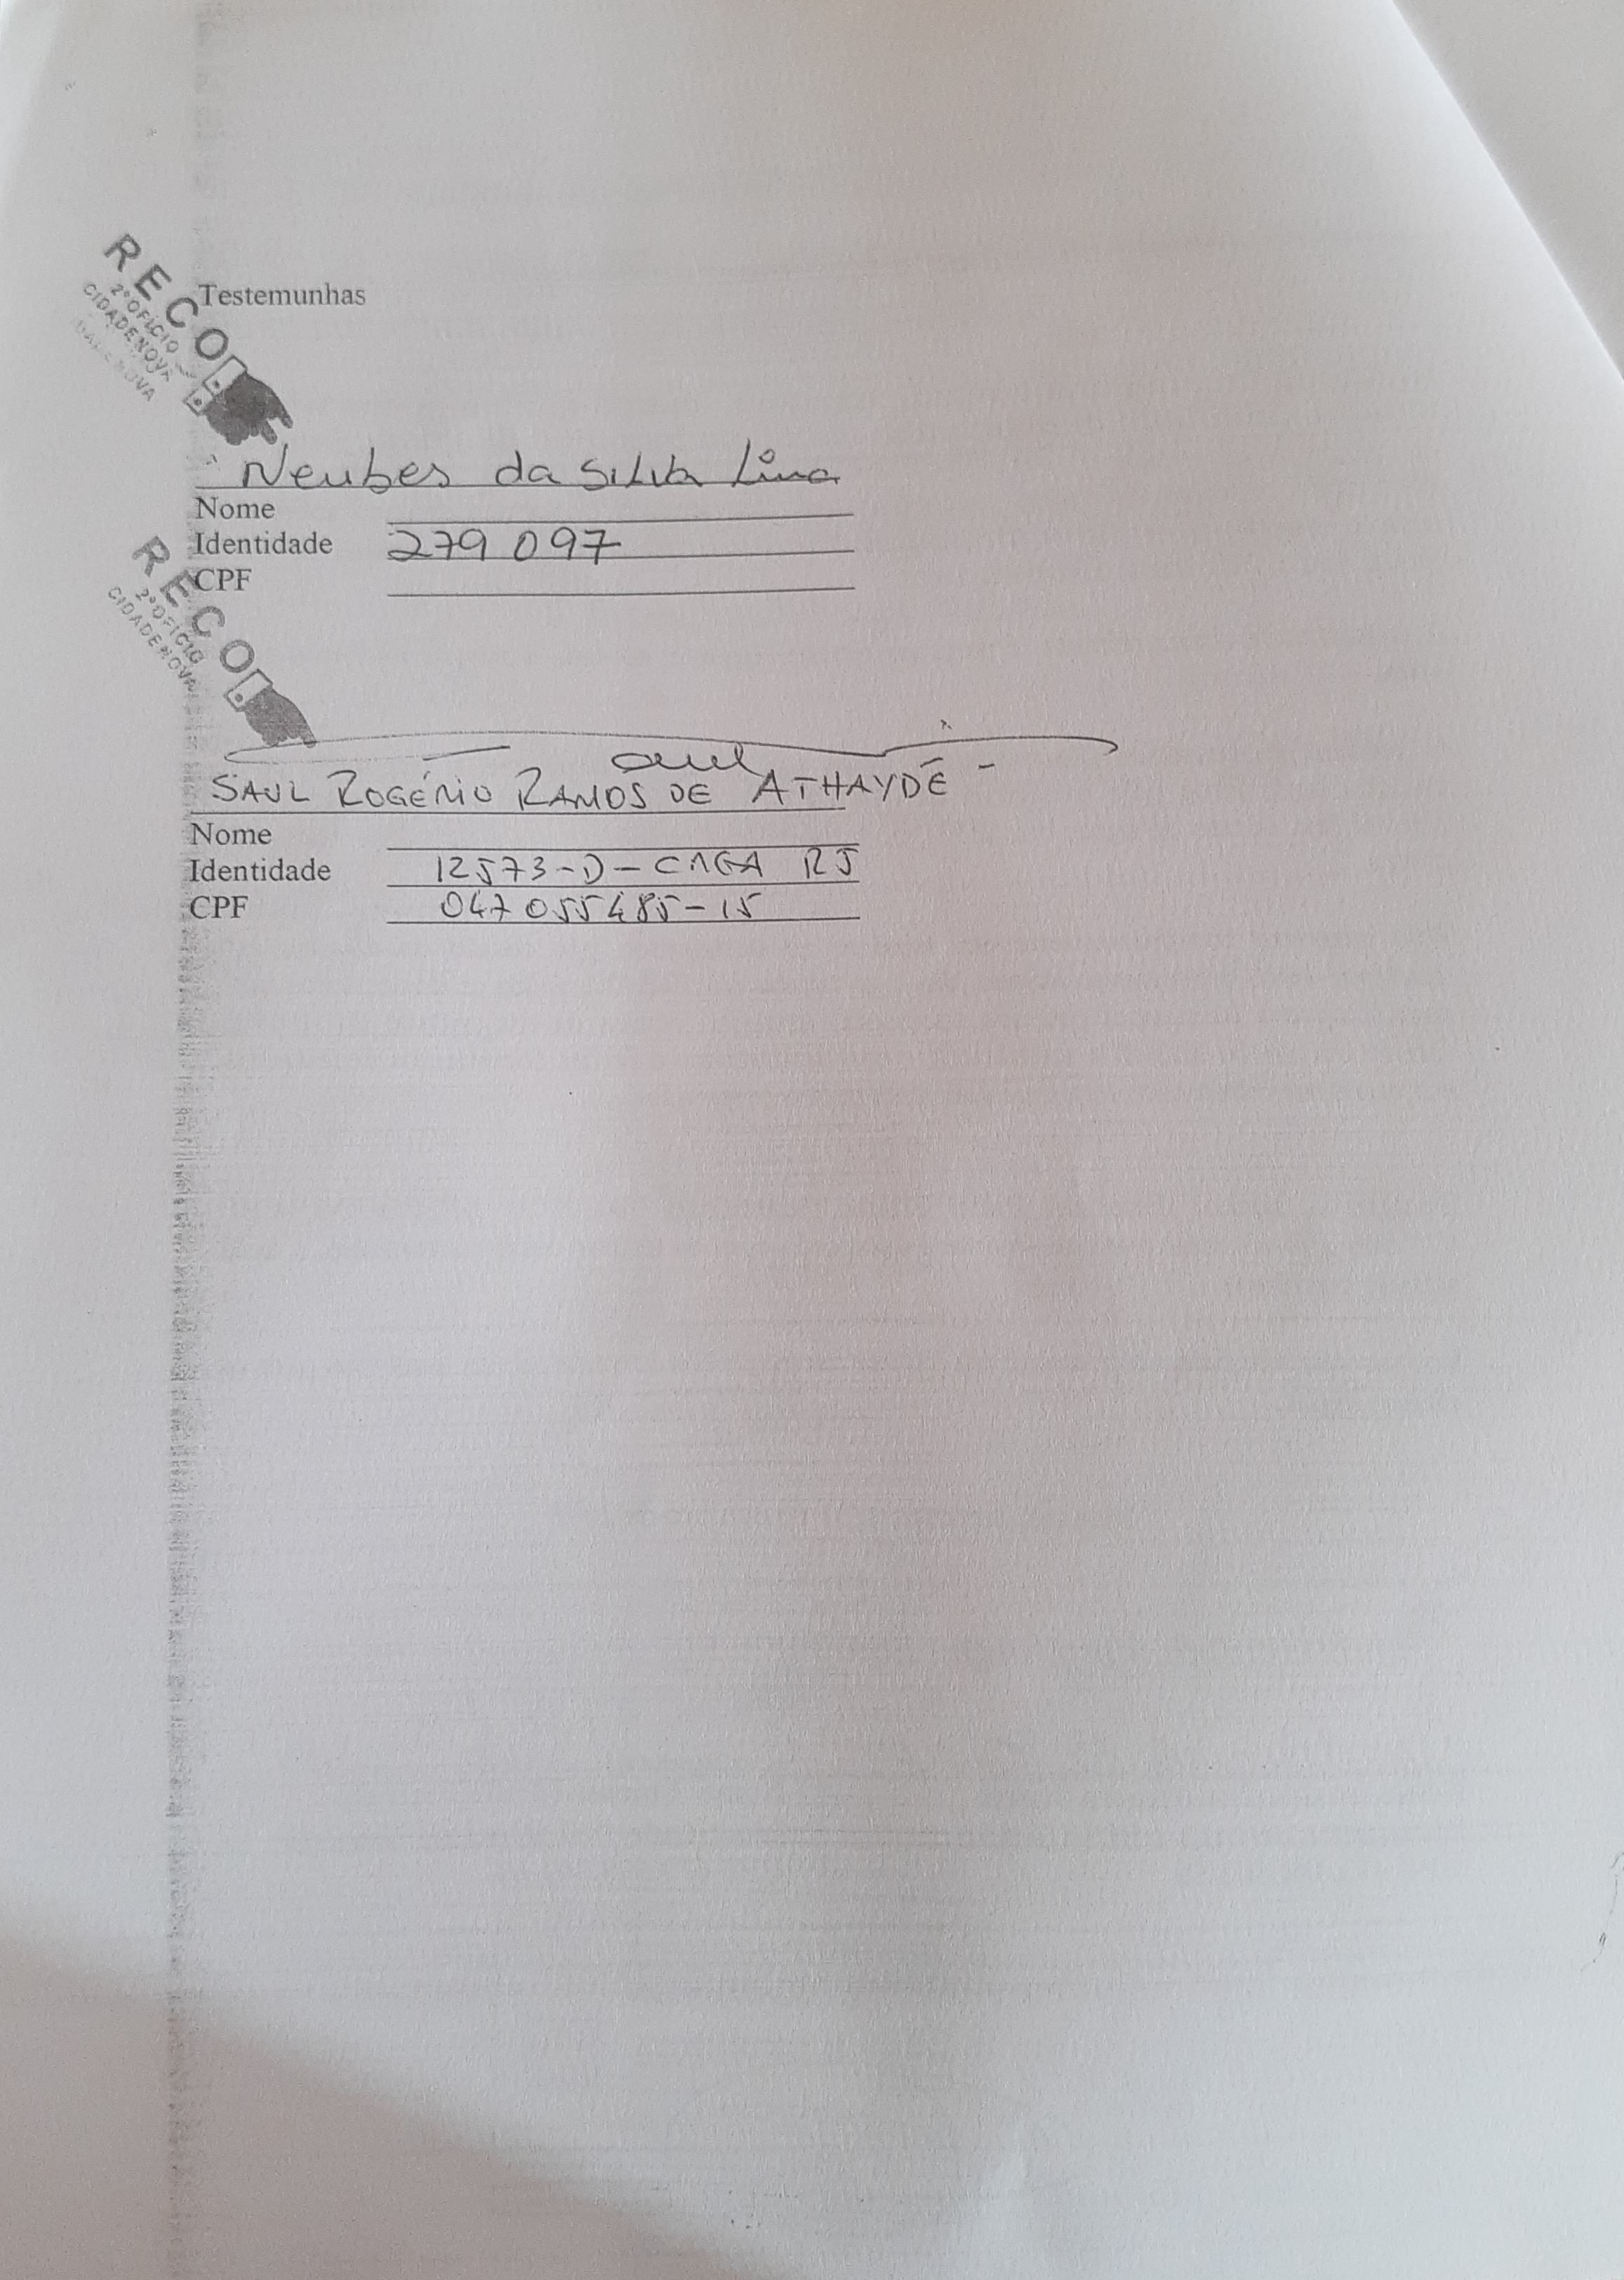 RECO
2º OFÍCIO
CIDADE NOVA
Testemunhas
Neubes da Silva Lima
Nome
Identidade 279 097
CPF
RECO
2º OFÍCIO
CIDADE NOVA
SAUL ROGÉRIO RAMOS DE ATHAYDE
Nome
Identidade 12573-D-
RJ
CPF 047 055 485-15